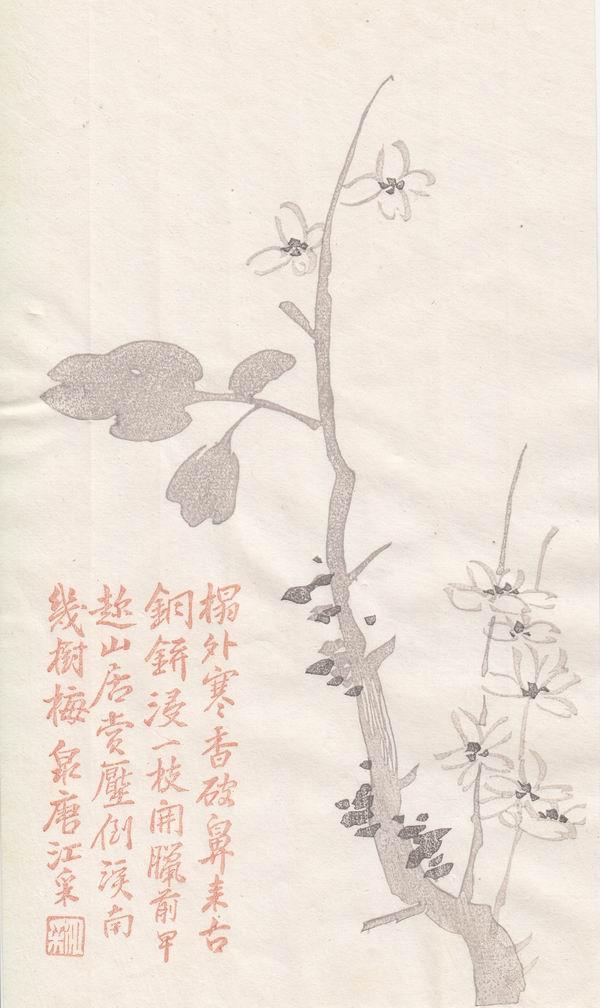 榻外寒香破鼻来古
銅缾浸一枝開臘前早
趂山居賞壓倒溪南
幾樹梅 泉唐江采